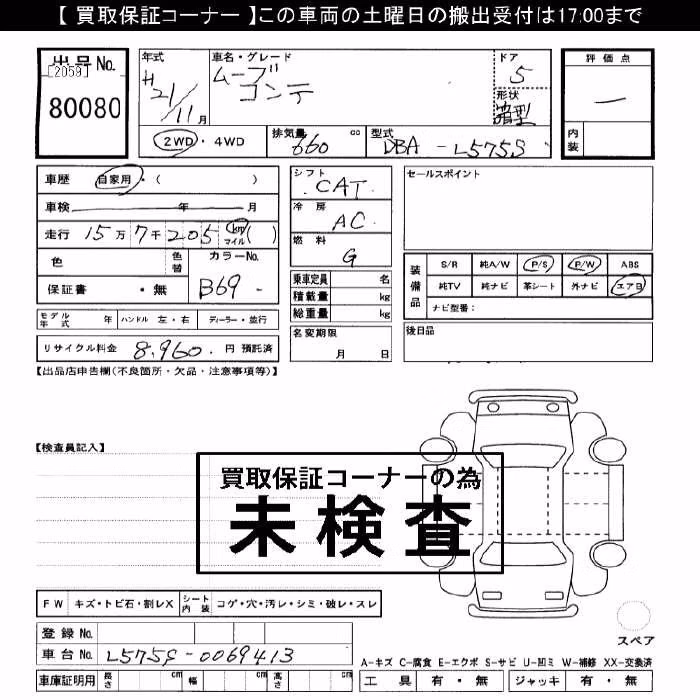 【 買取保証コーナー 】この車両の土曜日の搬出受付は17:00まで
出品No.
[2059]
80080
年式
H21/11月
車名・グレード
ムーブ
コンテ
ドア
5
形状
箱型
評価点
—
内装
2WD・4WD
排気量 660 cc
型式 DBA-L575S
車歴 自家用・( )
車検 年 月
走行 15万7千205 km マイル ( )
色 色替 カラーNo.
B69-
保証書 ・無
モデル年式 年 ハンドル 左・右 ディーラー・並行
リサイクル料金 8,960. 円 預託済
シフト
CAT
冷房
AC
燃料
G
乗車定員 名
積載量 kg
総重量 kg
名変期限
月 日
セールスポイント
装備品
S/R 純A/W P/S P/W ABS
純TV 純ナビ 革シート 外ナビ エアB
ナビ型番:
後日品
【出品店申告欄(不良箇所・欠品・注意事項等)】
【検査員記入】
買取保証コーナーの為
未検査
FW キズ・トビ石・割レX シート内装 コゲ・穴・汚レ・シミ・破レ・スレ
登録No.
車台No. L575S-0069413
車庫証明用 長さ cm 幅 cm 高さ cm
スペア
A-キズ C-腐食 E-エクボ S-サビ U-凹ミ W-補修 XX-交換済
工具 有・無 ジャッキ 有・無